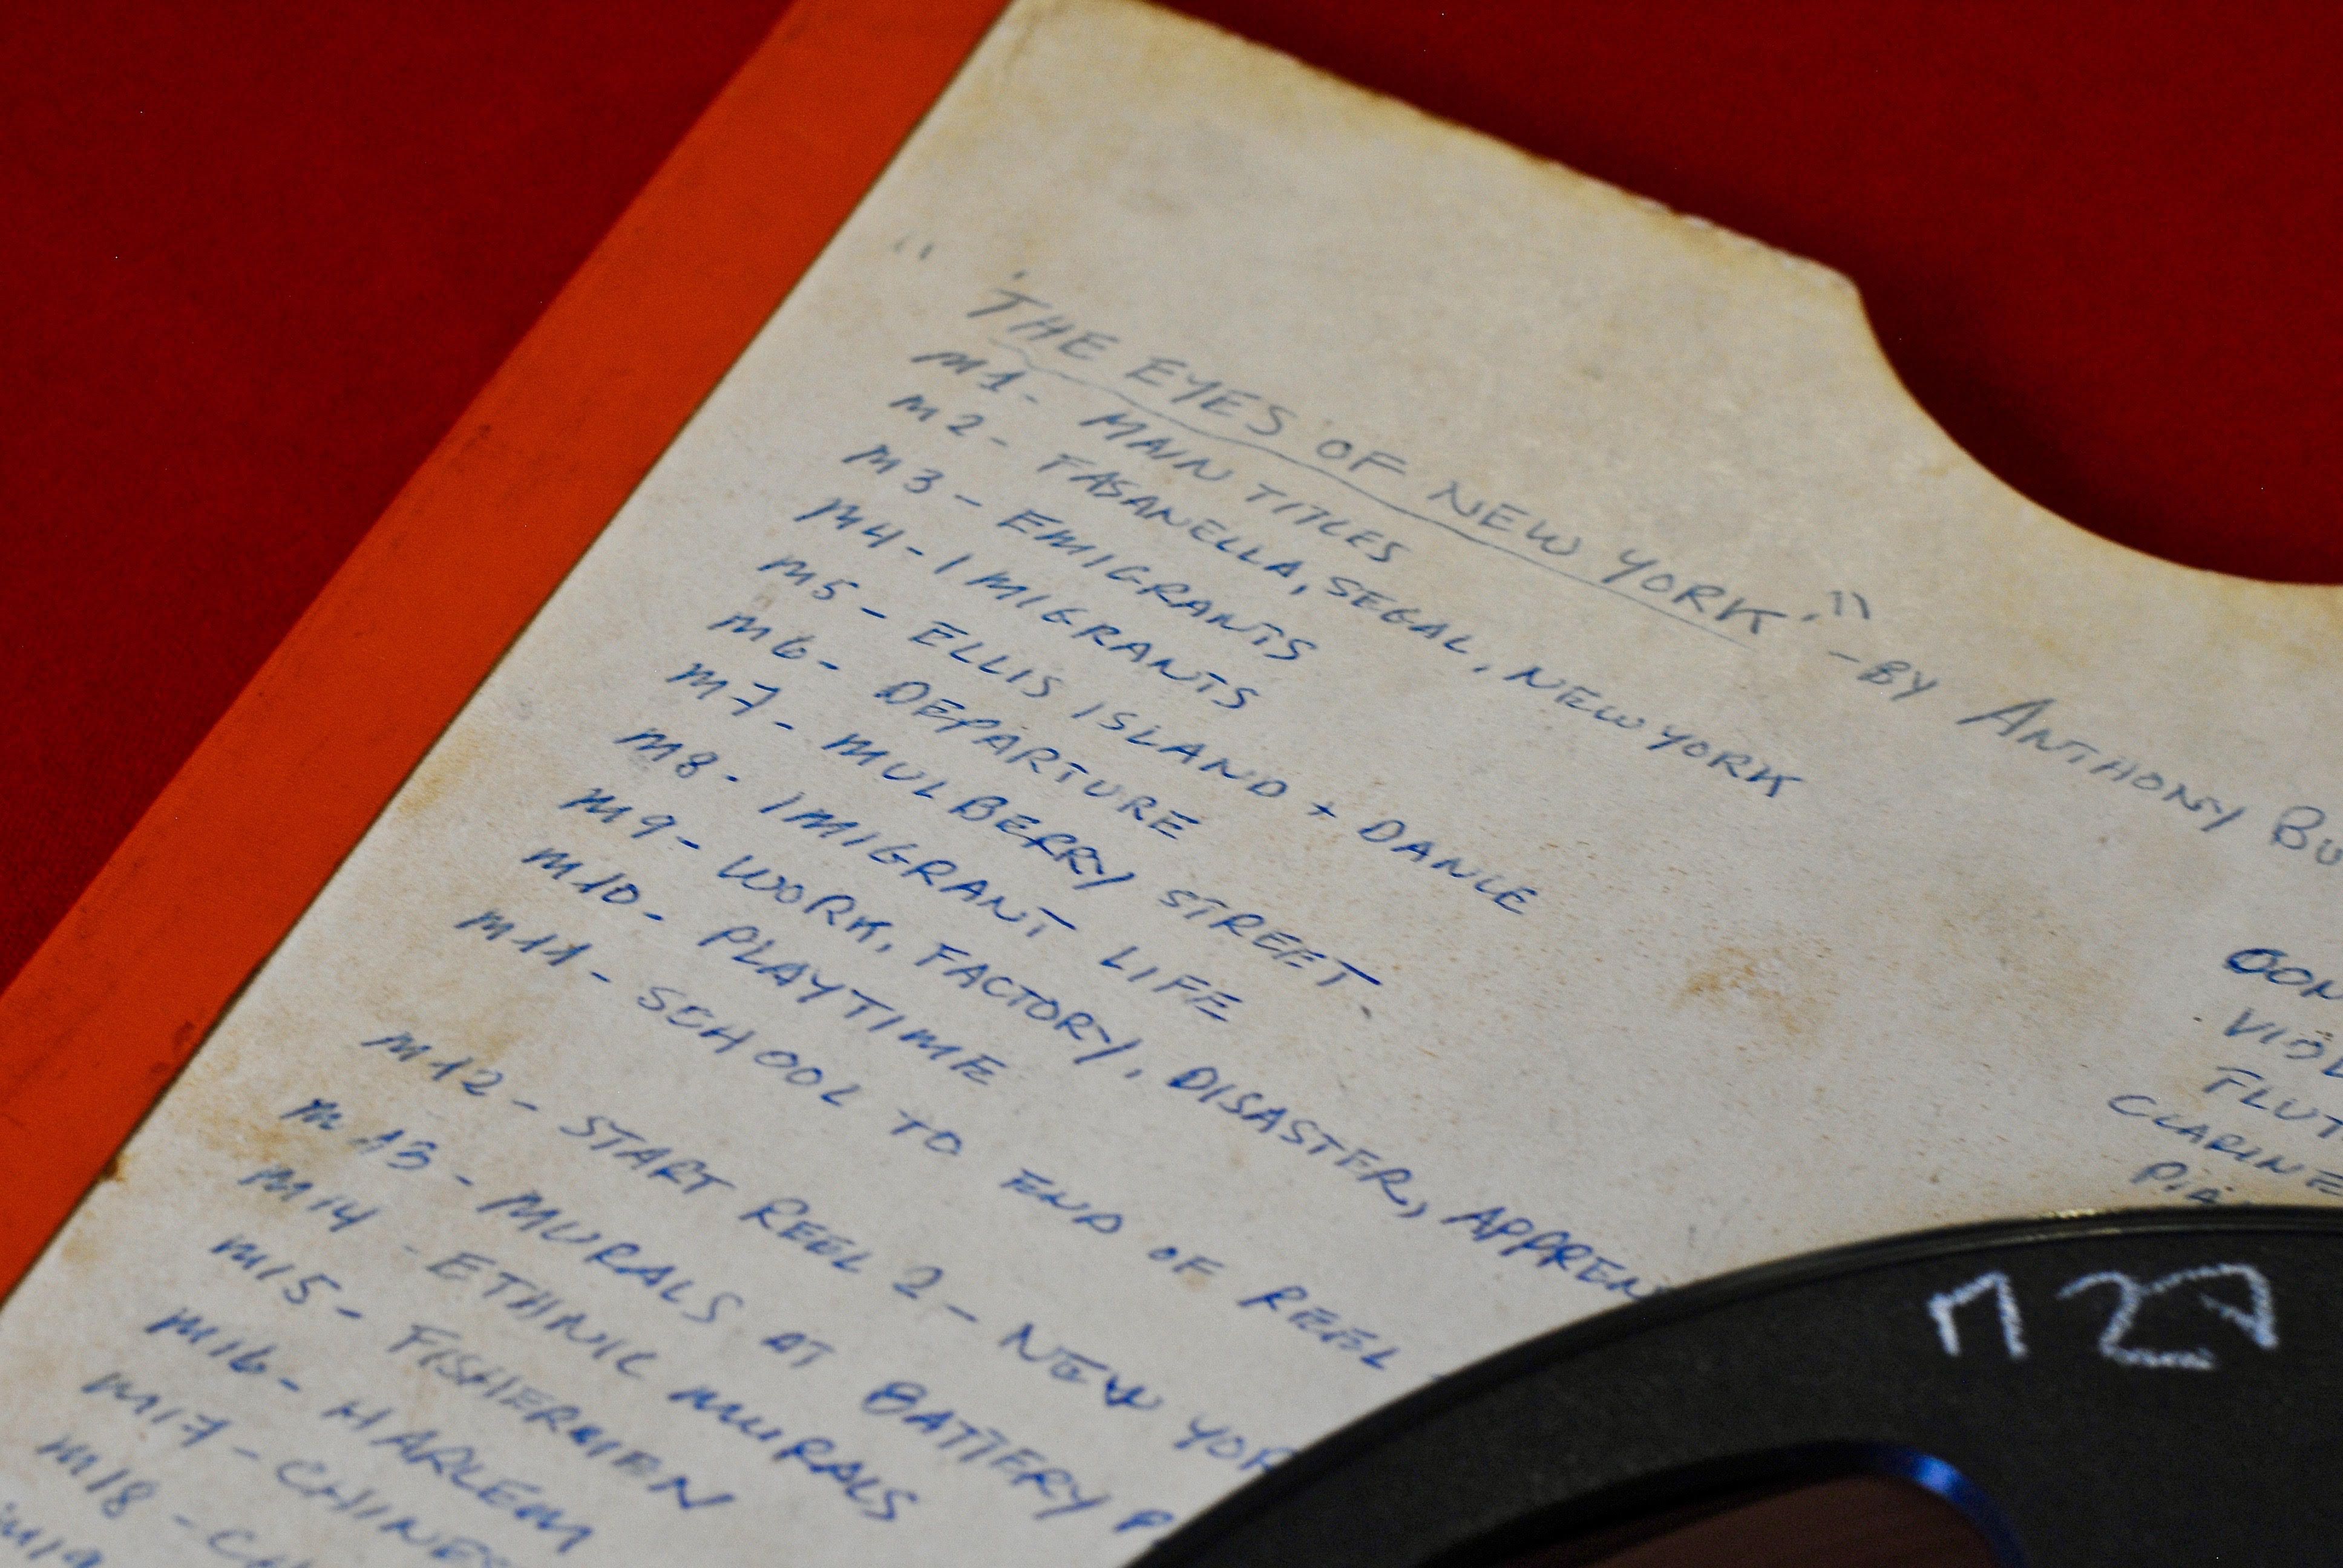 " THE EYES OF NEW YORK." - BY ANTHONY
M1 - MAIN TITLES
M2 - FASANELLA, SEGAL, NEW YORK
M3 - EMIGRANTS
M4 - IMIGRANTS
M5 - ELLIS ISLAND + DANCE
M6 - DEPARTURE
M7 - MULBERRY STREET.
M8 - IMIGRANT LIFE
M9 - WORK, FACTORY, DISASTER, APPREN
M10 - PLAYTIME
M11 - SCHOOL TO END OF REEL
M12 - START REEL 2 - NEW YOR
M13 - MURALS AT BATTERY P
M14 - ETHNIC MURALS
M15 - FISHERMEN
M16 - HARLEM
M17 - CHINES
M18 - CH
M19
CON
VIOL
FLUT
CLARINE
PIA
M27